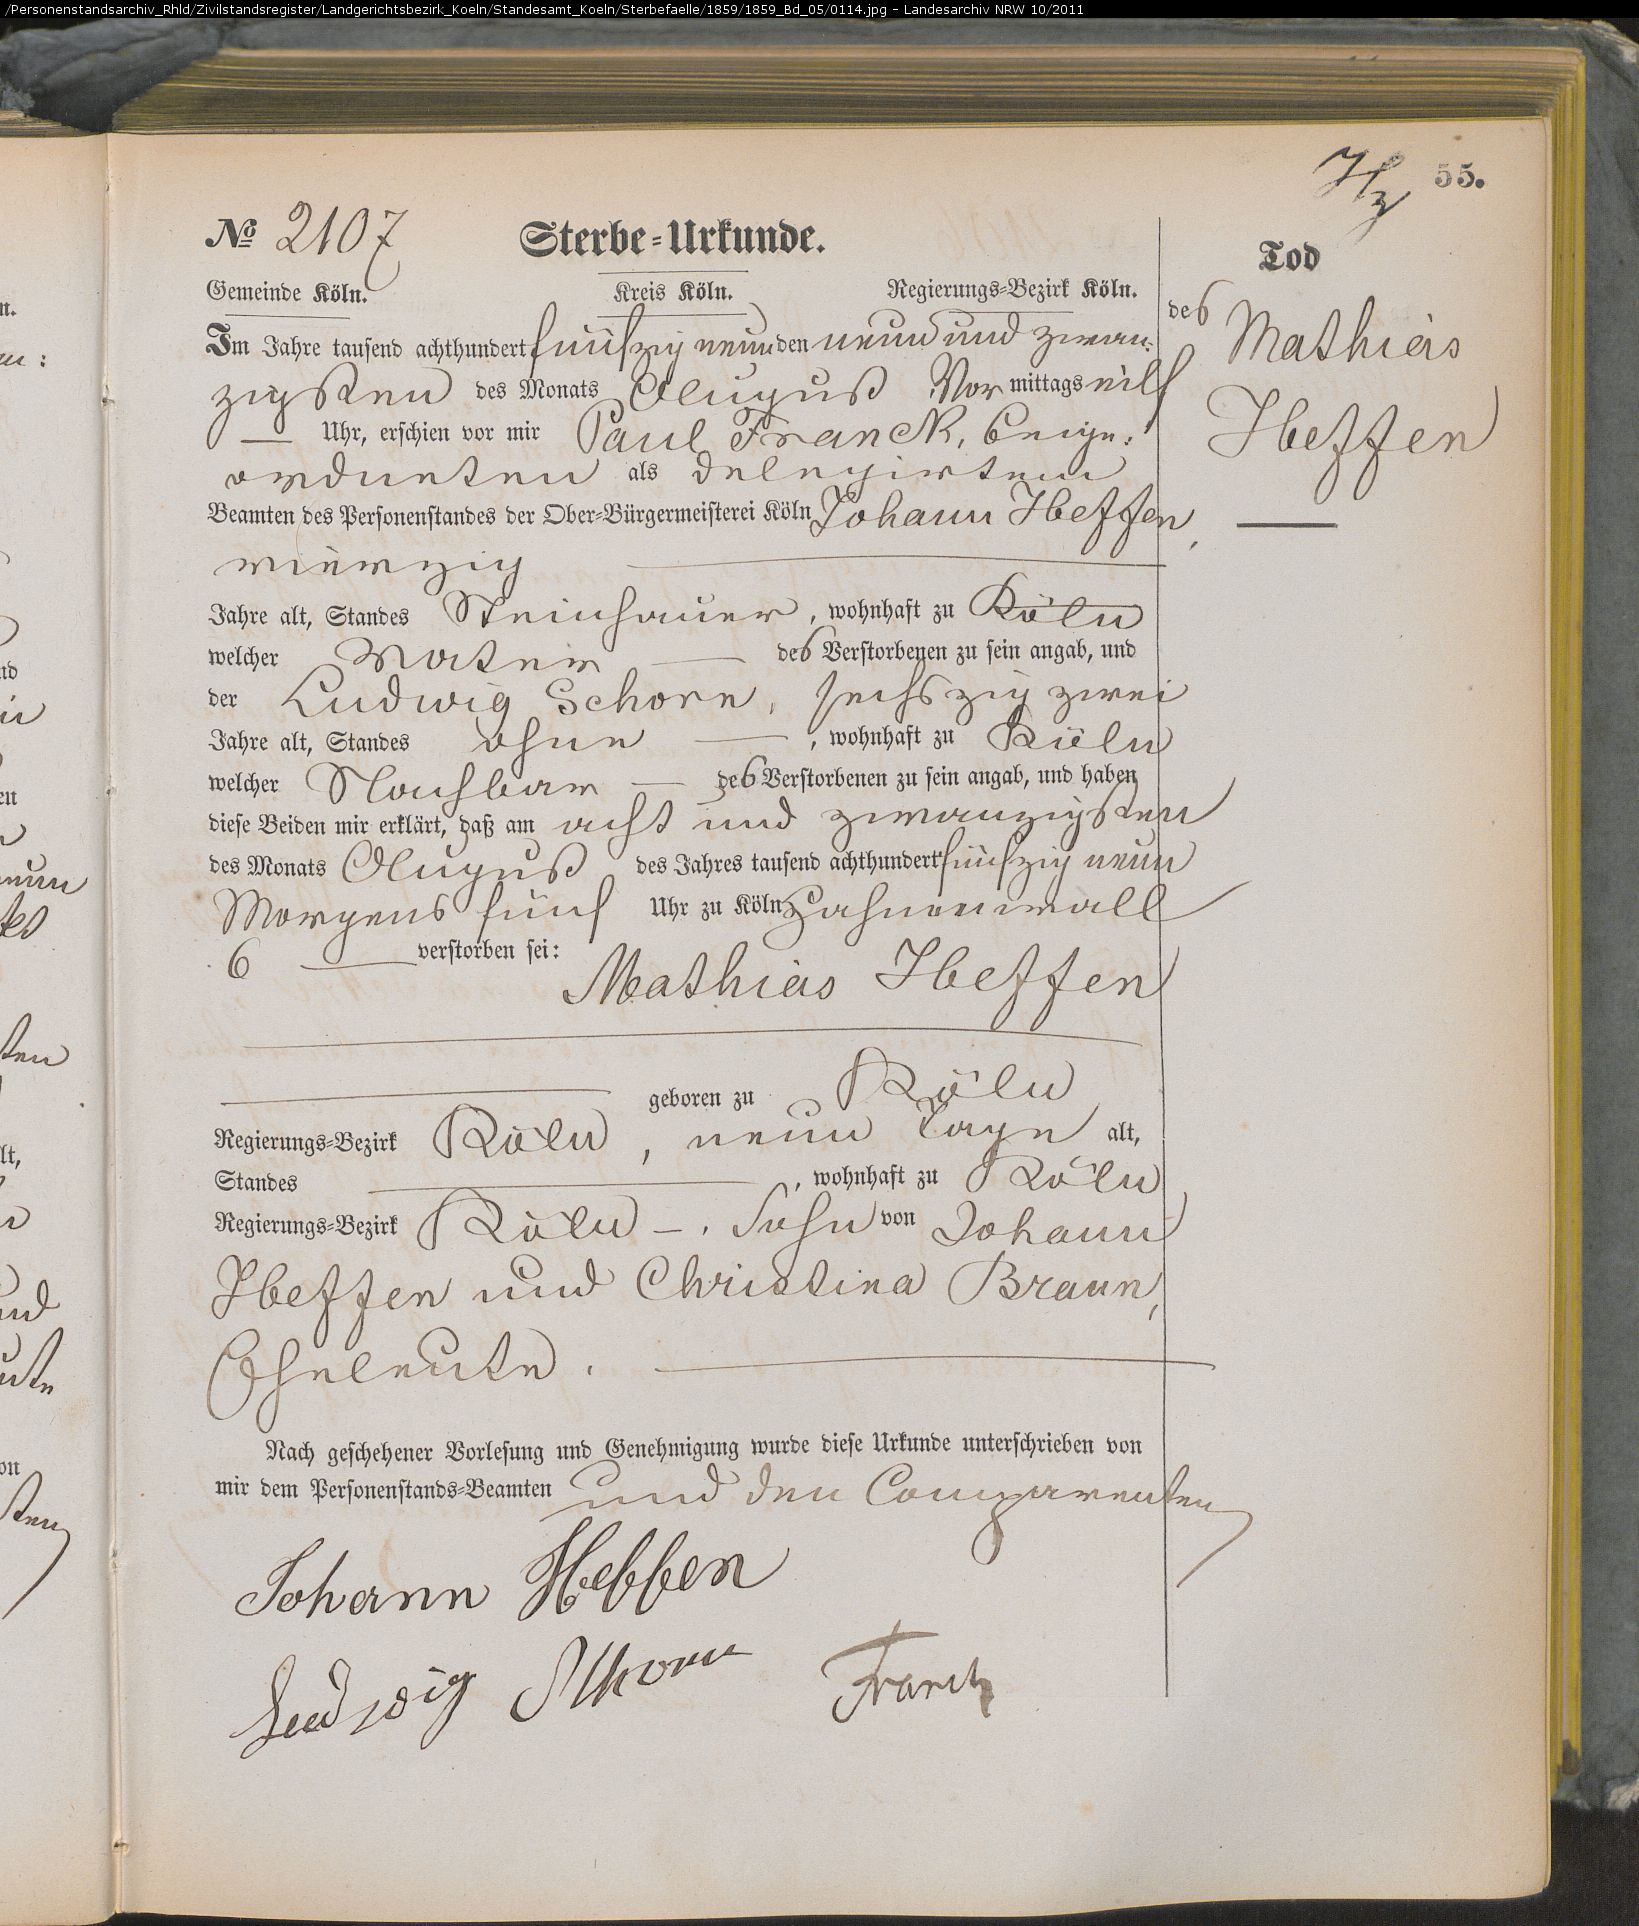 /Personenstandsarchiv_Rhld/Zivilstandsregister/Landgerichtsbezirk_Koeln/Standesamt_Koeln/Sterbefaelle/1859/1859_Bd_05/0114.jpg - Landesarchiv NRW 10/2011
55.
№ 2107 Sterbe-Urkunde.
Gemeinde Köln. Kreis Köln. Regierungs-Bezirk Köln.
Im Jahre tausend achthundert fünfzig neun den neun und zwan:
zigsten des Monats August Vor mittags eilf
— Uhr, erschien vor mir Paul Franck, Beige:
ordneten als delegirtem
Beamten des Personenstandes der Ober-Bürgermeisterei Köln Johann Heffen,
vierzig
Jahre alt, Standes Steinhauer, wohnhaft zu Köln
welcher Vater — des Verstorbenen zu sein angab, und
der Ludwig Schorn, sechszig zwei
Jahre alt, Standes ohne —, wohnhaft zu Köln
welcher Nachbar — des Verstorbenen zu sein angab, und haben
diese Beiden mir erklärt, daß am acht und zwanzigsten
des Monats August des Jahres tausend achthundert fünfzig neun
Morgens fünf Uhr zu Köln
6 — verstorben sei:
Mathias Heffen
geboren zu Köln
Regierungs-Bezirk Köln, neun Tage alt,
Standes —, wohnhaft zu Köln
Regierungs-Bezirk Köln —. Sohn von Johann
Heffen und Christina Braun,
Eheleute.
Nach geschehener Vorlesung und Genehmigung wurde diese Urkunde unterschrieben von
mir dem Personenstands-Beamten und den Comparenten
Johann Heffen
Ludwig Schorn Franck
Tod
des Mathias
Heffen